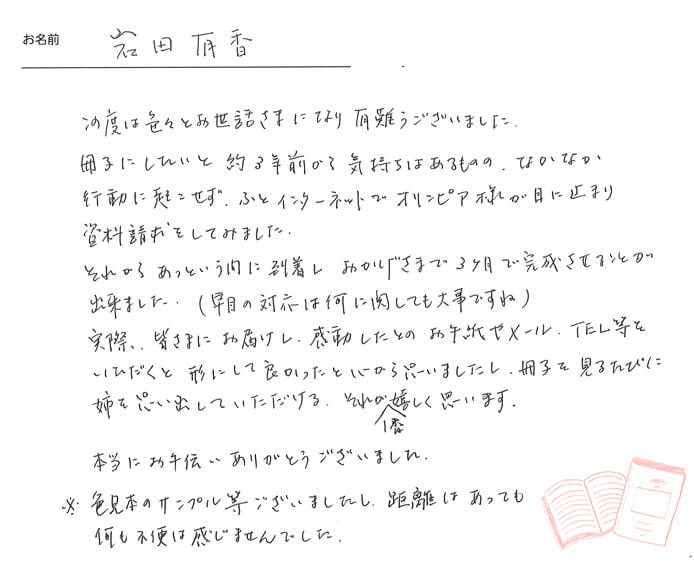 お名前 岩田有香
この度は色々とお世話さまになり有難うございました。
冊子にしたいと約3年前から気持ちはあるものの、なかなか
行動に起こせず、ふとインターネットでオリンピア様が目に止まり
資料請求をしてみました。
それからあっという間に到着し おかげさまで3ヶ月で完成させることが
出来ました。(早目の対応は何に関しても大事ですね)
実際、皆さまにお届けし、感動したとのお手紙やメール、TEL等を
いただくと 形にして良かったと心から思いましたし、冊子を見るたびに
姉を思い出していただける、それが1番嬉しく思います。
本当にお手伝いありがとうございました。
※色見本のサンプル等ございましたし、距離はあっても
何も不便は感じませんでした。